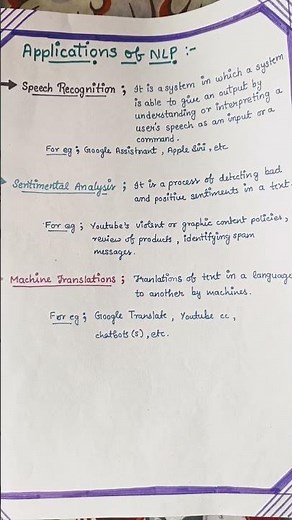 Applications of NLP :-
→ Speech Recognition ; It is a system in which a system
is able to give an output by
understanding or interpreting a
user's speech as an input or a
command.
For eg ; Google Assistnant , Apple Siri , etc
Sentimental Analysis ; It is a process of detecting bad
and positive sentiments in a text.
For eg ; Youtube's violent or graphic content policies,
review of products , identifying spam
messages.
Machine Translations ; Tranlations of text in a language
to another by machines.
For eg ; Google Translate , Youtube cc ,
chatbots(s) , etc.